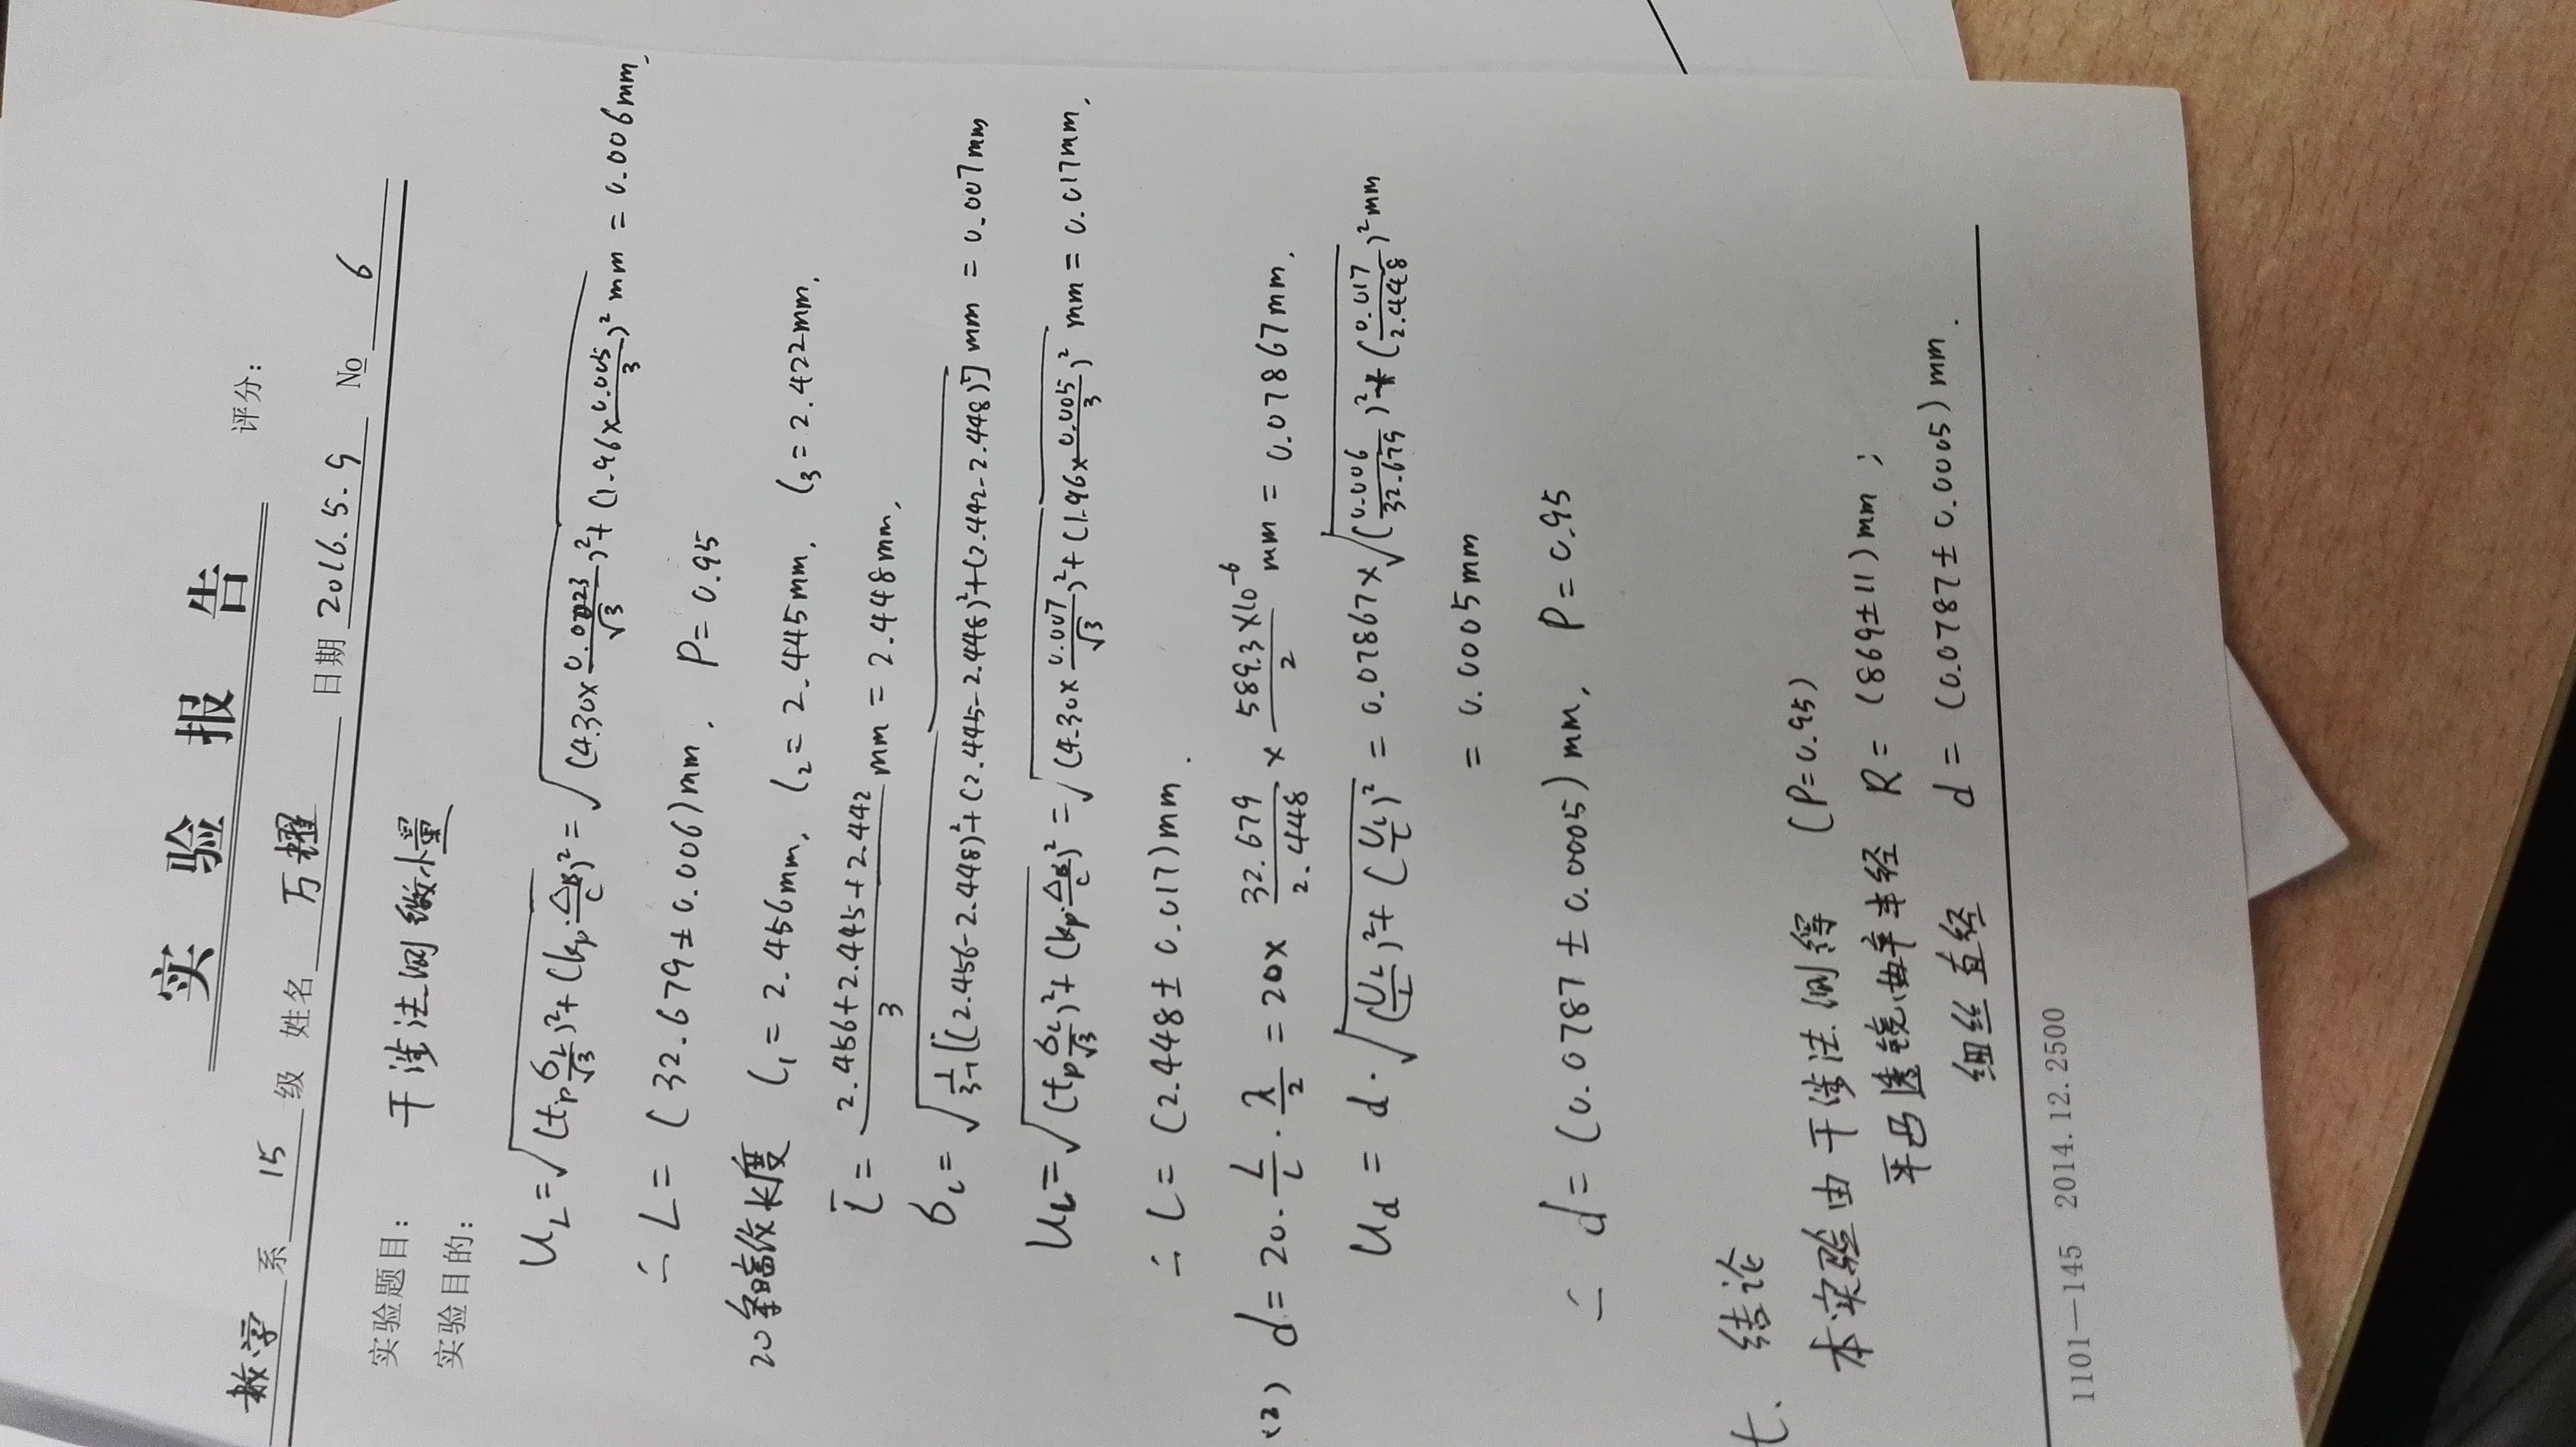 实 验 报 告
评分：
数学 系 15 级 姓名 万耀 日期 2016.5.9 № 6
实验题目： 干涉法测微小量
实验目的：
U_L = √((t_p σ_L/√3)² + (k_p·Δ_B/C)²) = √((4.30×0.0023/√3)² + (1.96×0.005/3)²) mm = 0.006mm,
∴ L = (32.679±0.006)mm, P=0.95
20条暗纹长度 l₁=2.456mm, l₂=2.445mm, l₃=2.422mm,
l̄ = (2.456+2.445+2.442)/3 mm = 2.448mm,
σ_l = √(1/(3-1) [(2.456-2.448)²+(2.445-2.448)²+(2.442-2.448)²]) mm = 0.007mm
U_l = √((t_p σ_l/√3)² + (k_p·Δ_B/C)²) = √((4.30×0.007/√3)² + (1.96×0.005/3)²) mm = 0.017mm,
∴ l = (2.448±0.017)mm.
(2) d = 20·L/l·λ/2 = 20×32.679/2.448×589.3×10⁻⁶/2 mm = 0.07867mm,
U_d = d·√((U_L/L)²+(U_l/l)²) = 0.07867×√((0.006/32.679)²+(0.017/2.448)²) mm
= 0.0005mm
∴ d = (0.0787±0.0005)mm, P=0.95
七、结论
本实验由干涉法测得 (P=0.95)
平凸透镜曲率半径 R = (869±11)mm；
细丝直径 d = (0.0787±0.0005)mm.
1101—145 2014.12.2500